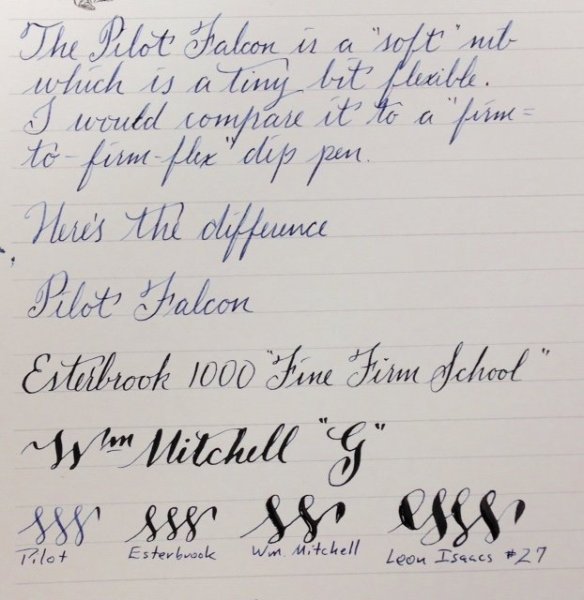 The Pilot Falcon is a "soft" nib
which is a tiny bit flexible.
I would compare it to a "firm=
to-firm-flex" dip pen.
Here's the difference
Pilot Falcon
Esterbrook 1000 "Fine Firm School"
Wm Mitchell "G"
Pilot Esterbrook Wm. Mitchell Leon Isaacs #27